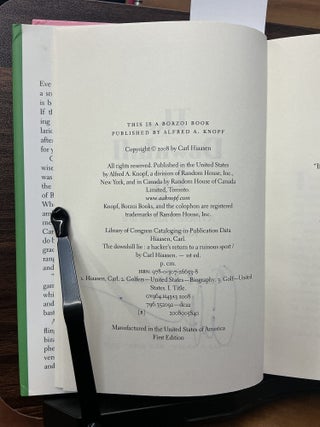 THIS IS A BORZOI BOOK
PUBLISHED BY ALFRED A. KNOPF
Copyright © 2008 by Carl Hiaasen
All rights reserved. Published in the United States
by Alfred A. Knopf, a division of Random House, Inc.,
New York, and in Canada by Random House of Canada
Limited, Toronto.
www.aaknopf.com
Knopf, Borzoi Books, and the colophon are registered
trademarks of Random House, Inc.
Library of Congress Cataloging-in-Publication Data
Hiaasen, Carl.
The downhill lie : a hacker's return to a ruinous sport /
by Carl Hiaasen. — 1st ed.
p. cm.
ISBN: 978-0-307-26653-8
1. Hiaasen, Carl. 2. Golfers—United States—Biography. 3. Golf—United
States. I. Title.
GV964.H4353 2008
796.352092—dc22
[B]
Manufactured in the United States of America
First Edition